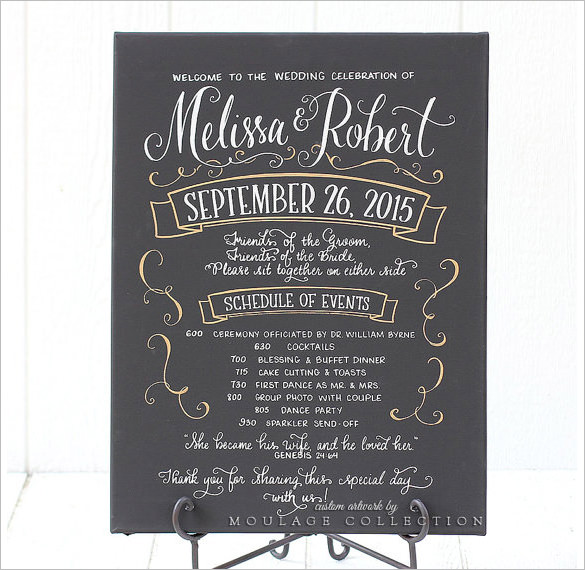 WELCOME TO THE WEDDING CELEBRATION OF
Melissa & Robert
SEPTEMBER 26, 2015
Friends of the Groom,
Friends of the Bride,
Please sit together on either side
SCHEDULE OF EVENTS
600 CEREMONY OFFICIATED BY DR. WILLIAM BYRNE
630 COCKTAILS
700 BLESSING & BUFFET DINNER
715 CAKE CUTTING & TOASTS
730 FIRST DANCE AS MR. & MRS.
800 GROUP PHOTO WITH COUPLE
805 DANCE PARTY
930 SPARKLER SEND-OFF
"She became his wife, and he loved her."
GENESIS 24:64
Thank you for sharing this special day
with us!
custom artwork by
MOULAGE COLLECTION